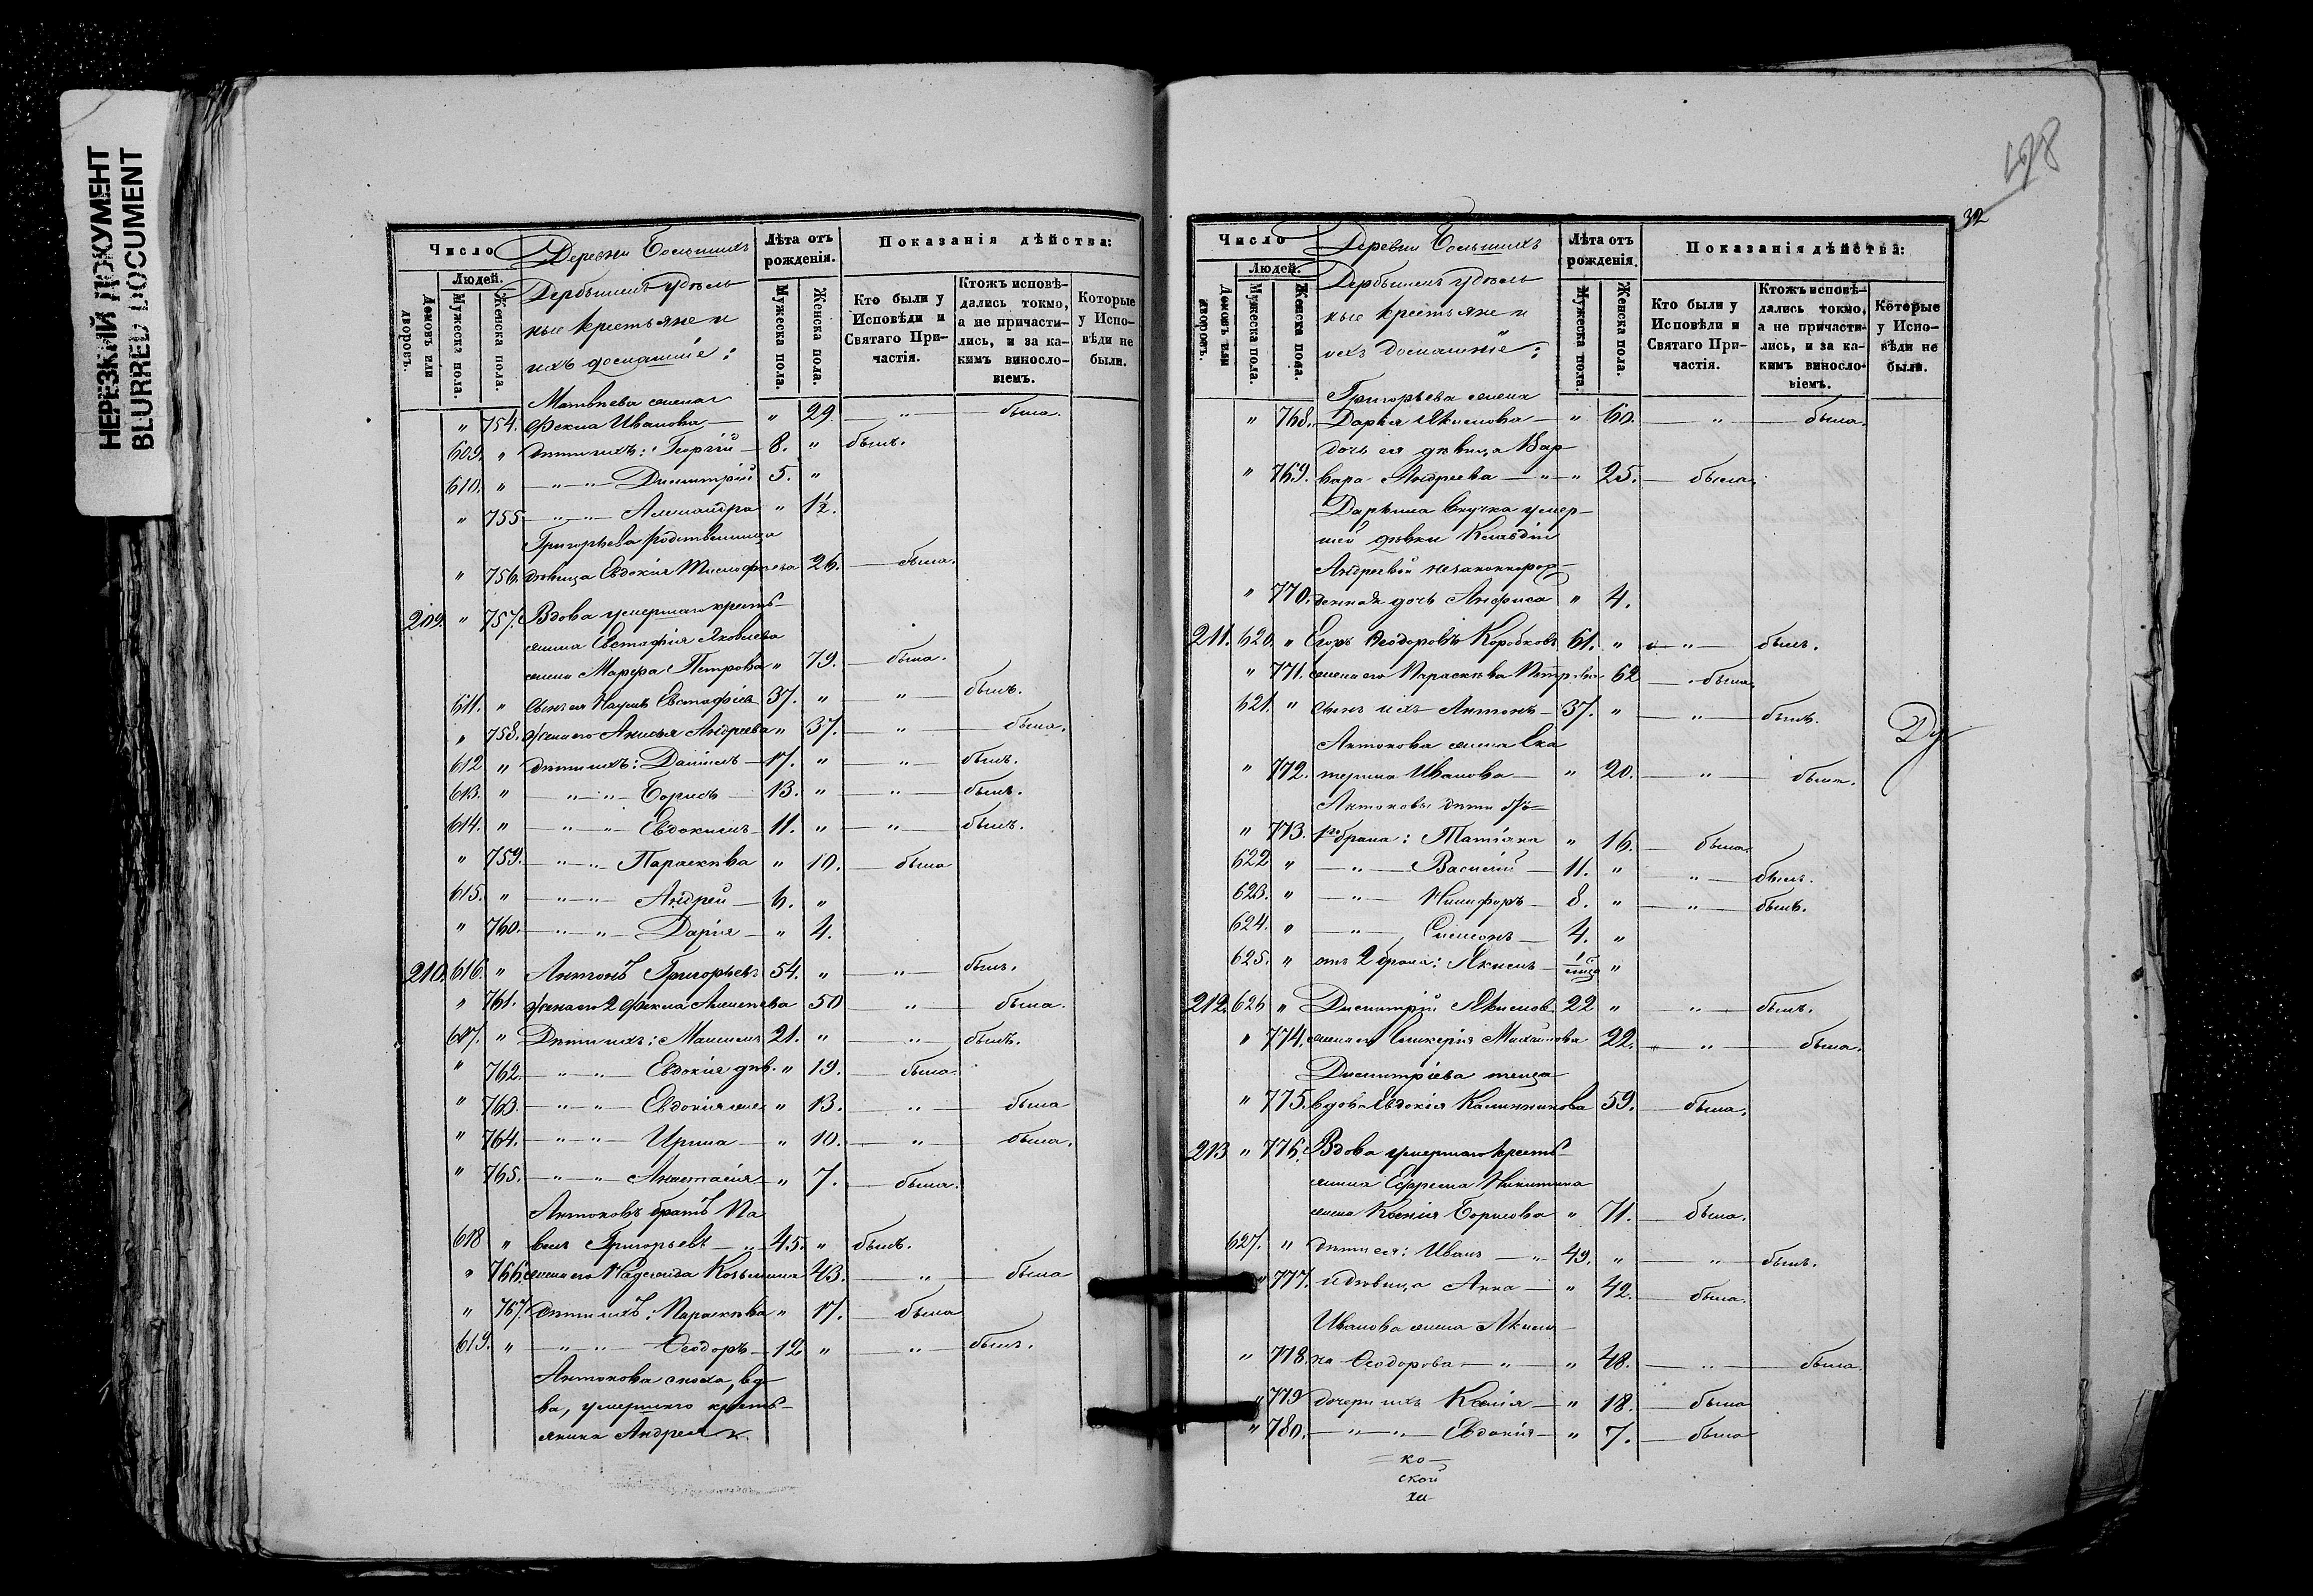 НЕРЕЗКИЙ ДОКУМЕНТ
BLURRED DOCUMENT
Число
Людей.
Домовъ или дворовъ.
Мужеска пола.
Женска пола.
Деревни Большихъ
Дербышекъ удѣль
ные крестьяне и
ихъ домашніе:
Лѣта отъ рожденія.
Мужеска пола.
Женска пола.
Показанія дѣйства:
Кто были у Исповѣди и Святаго При-частія.
Ктожъ исповѣ-дались токмо, а не причасти-лись, и за ка-кимъ винosло-віемъ.
Которые у Испо-вѣди не были.
Матвѣева жена
" 754. Ѳекла Иванова — " 29. — " — была.
609. " дѣти ихъ: Георгій — 8. " былъ.
610. " — " — " — Димитрій 5. "
" 755. — " — " — Александра " 1½.
Григорьева родственница
" 756. дѣвица Евдокія Тимофѣева 26. — была.
209. " 757. Вдова умершаго кресть-
янина Евстафія Яковлева
жена Марфа Петрова " 79. — была.
611. " сынъ ея Наумъ Евстафіев 37. " — " — былъ.
" 758. жена его Анисья Андреева " 37. — " — была.
612 " дѣти ихъ: Даніилъ — 17. " — " — былъ.
613. " — " — " — Борисъ — 13. " — " — былъ.
614. " — " — " — Евдокимъ — 11. " — " — былъ.
" 759. — " — " — Параскѣва " 10. — была
615. " — " — " — Андрей — 6. "
" 760. — " — " — Дарія — " 4.
210. 616. " Антонъ Григорьевъ 54. " — " — былъ.
" 761. жена его 2 Ѳекла Алексѣева 50 — " — была.
617. " Дѣти ихъ: Максимъ 21. " — " — былъ.
" 762. — " — " — Евдокія дѣв. " 19. — была.
" 763. — " — " — Евдокія " 13. — " — была
" 764. — " — " — Ирина — " 10. — " — была.
" 765. — " — " — Анастасія — " 7. — была.
Антоновъ братъ Па
618 " велъ Григорьевъ — " — 45. " былъ.
" 766. жена его Надежда Козьмина 43. — " — была
" 767. дѣти ихъ: Параскѣва " 17. — была
619. " — " — " — Ѳеодоръ — 12 " — " — былъ.
Антонова сноха, вдо
ва, умершаго кресть-
янина Андрея
Число
Людей.
Домовъ или дворовъ.
Мужеска пола.
Женска пола.
Деревни Большихъ
Дербышекъ удѣль
ные крестьяне и
ихъ домашніе:
Лѣта отъ рожденія.
Мужеска пола.
Женска пола.
Показанія дѣйства:
Кто были у Исповѣди и Святаго При-частія.
Ктожъ исповѣ-дались токмо, а не причасти-лись, и за ка-кимъ виносло-віемъ.
Которые у Испо-вѣди не были.
32
Григорьева жена
" 768. Дарья Якимова — " 60. — " — была.
дочь ея дѣвица Вар-
" 769. вара Андреева — " — " 25. — была.
Дарьина внучка умер-
шей дѣвки Клавдіи
Андреевой незаконнорож-
" 770. денная дочь Анфиса " 4.
211. 620. " Егоръ Ѳеодоровъ Коробковъ 61. " — " — былъ.
" 771. жена его Параскѣва Петрова 62 — была.
621. " сынъ ихъ Антонъ — 37. " — " — былъ.
Антонова жена Ека
" 772. терина Иванова — " 20. — " — была.
Антоновы дѣти отъ
" 773. 1го брака: Татіана " 16. — была.
622 " — " — Василій — 11. " — " — былъ.
623. " — " — Никифоръ — 8. " — " — былъ.
624. " — " — Симеонъ — 4. "
625. " отъ 2 брака: Якимъ — "
212. 626 " Димитрій Якимов 22 " — " — былъ.
" 774. жена его Гликерія Михайлова 22. " — " — была.
Димитріева теща
" 775. вдова Евдокія Калинникова 59. — была.
213 " 776. Вдова умершаго кресть-
янина Ефрема Никитина
жена Ксенія Борисова " 71. — была.
627. " дѣти ея: Иванъ — " 49. " — " — былъ.
" 777. и дѣвица Анна — " 42. — была.
Иванова жена Акили-
" 778. на Ѳеодорова — " — " 48. — " — была.
" 779 дочери ихъ Ксенія — " 18. — была
" 780. — " — " — Евдокія — " 7. — была
ко-
ской